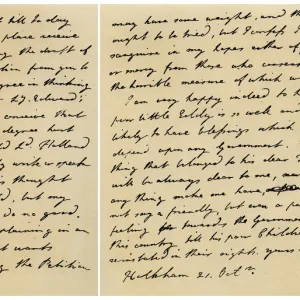 till to day
place receive
the draft of
from you to
agree in thinking
Ld. Edward;
conceive that
degree hurt
Ld. Holland
write or speak
is thought
but my
do no good.
explaining in an
wants
the Petition
may have some weight, and th
ought to be tried, but I confess I
sanguine in my hopes either of
or mercy from those who
the horrible measure of which w
I am very happy indeed to h
poor little Eddy is so well and
likely to have blessings which
depend upon any Government.
thing that belonged to his dear
will be always dear to me,
any thing make me have,
not say a friendly, but even a pa
feeling towards the Governme
this country, till his poor Childre
reinstated in their rights. yours
Holkham 21. Octr.